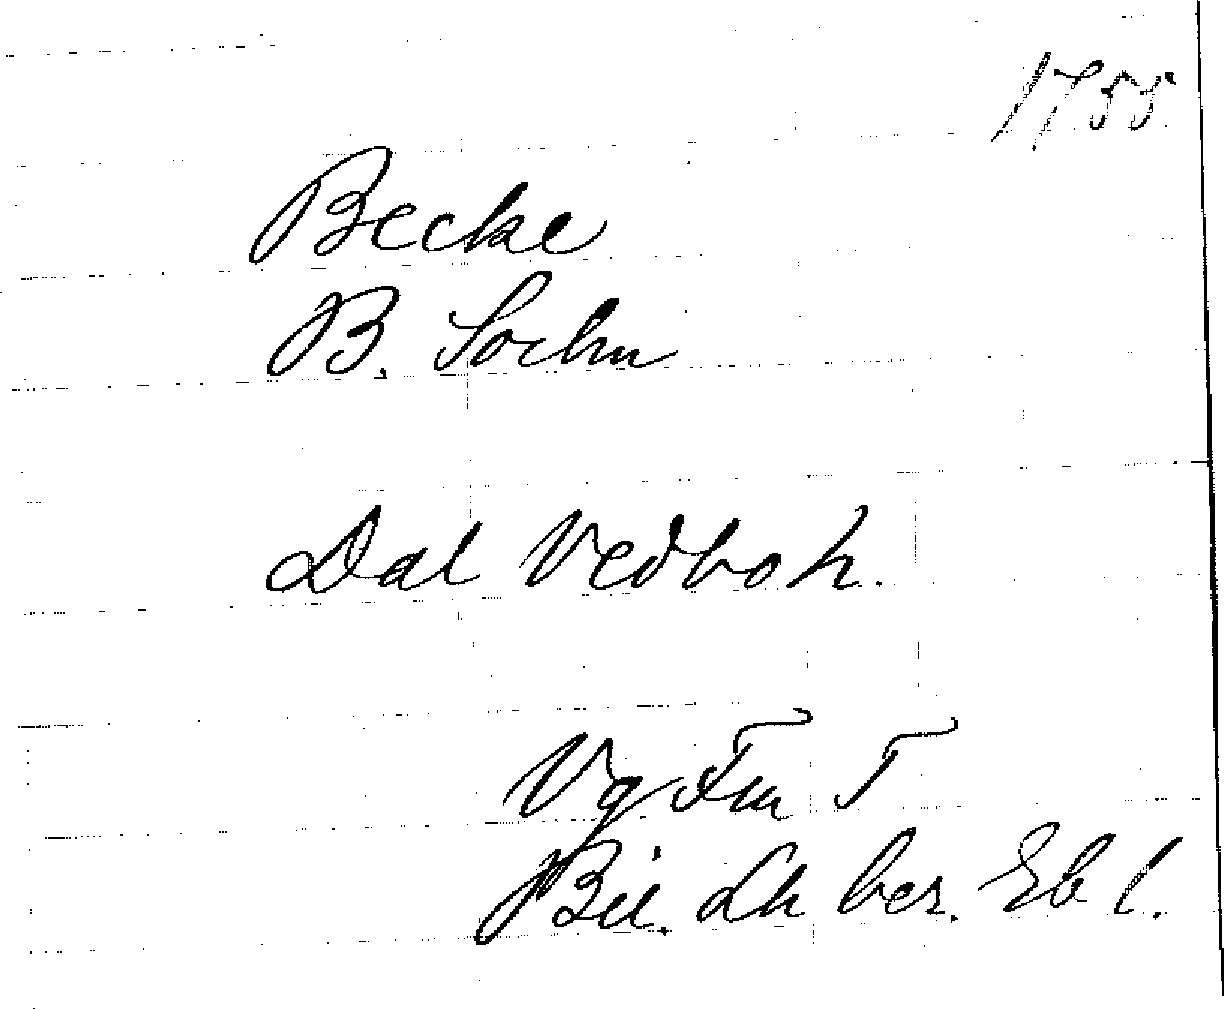 1755
Becke
B. Sochn
Dal Vedboh.
Vg Fm T
Bil. Lh ber. Eb l.